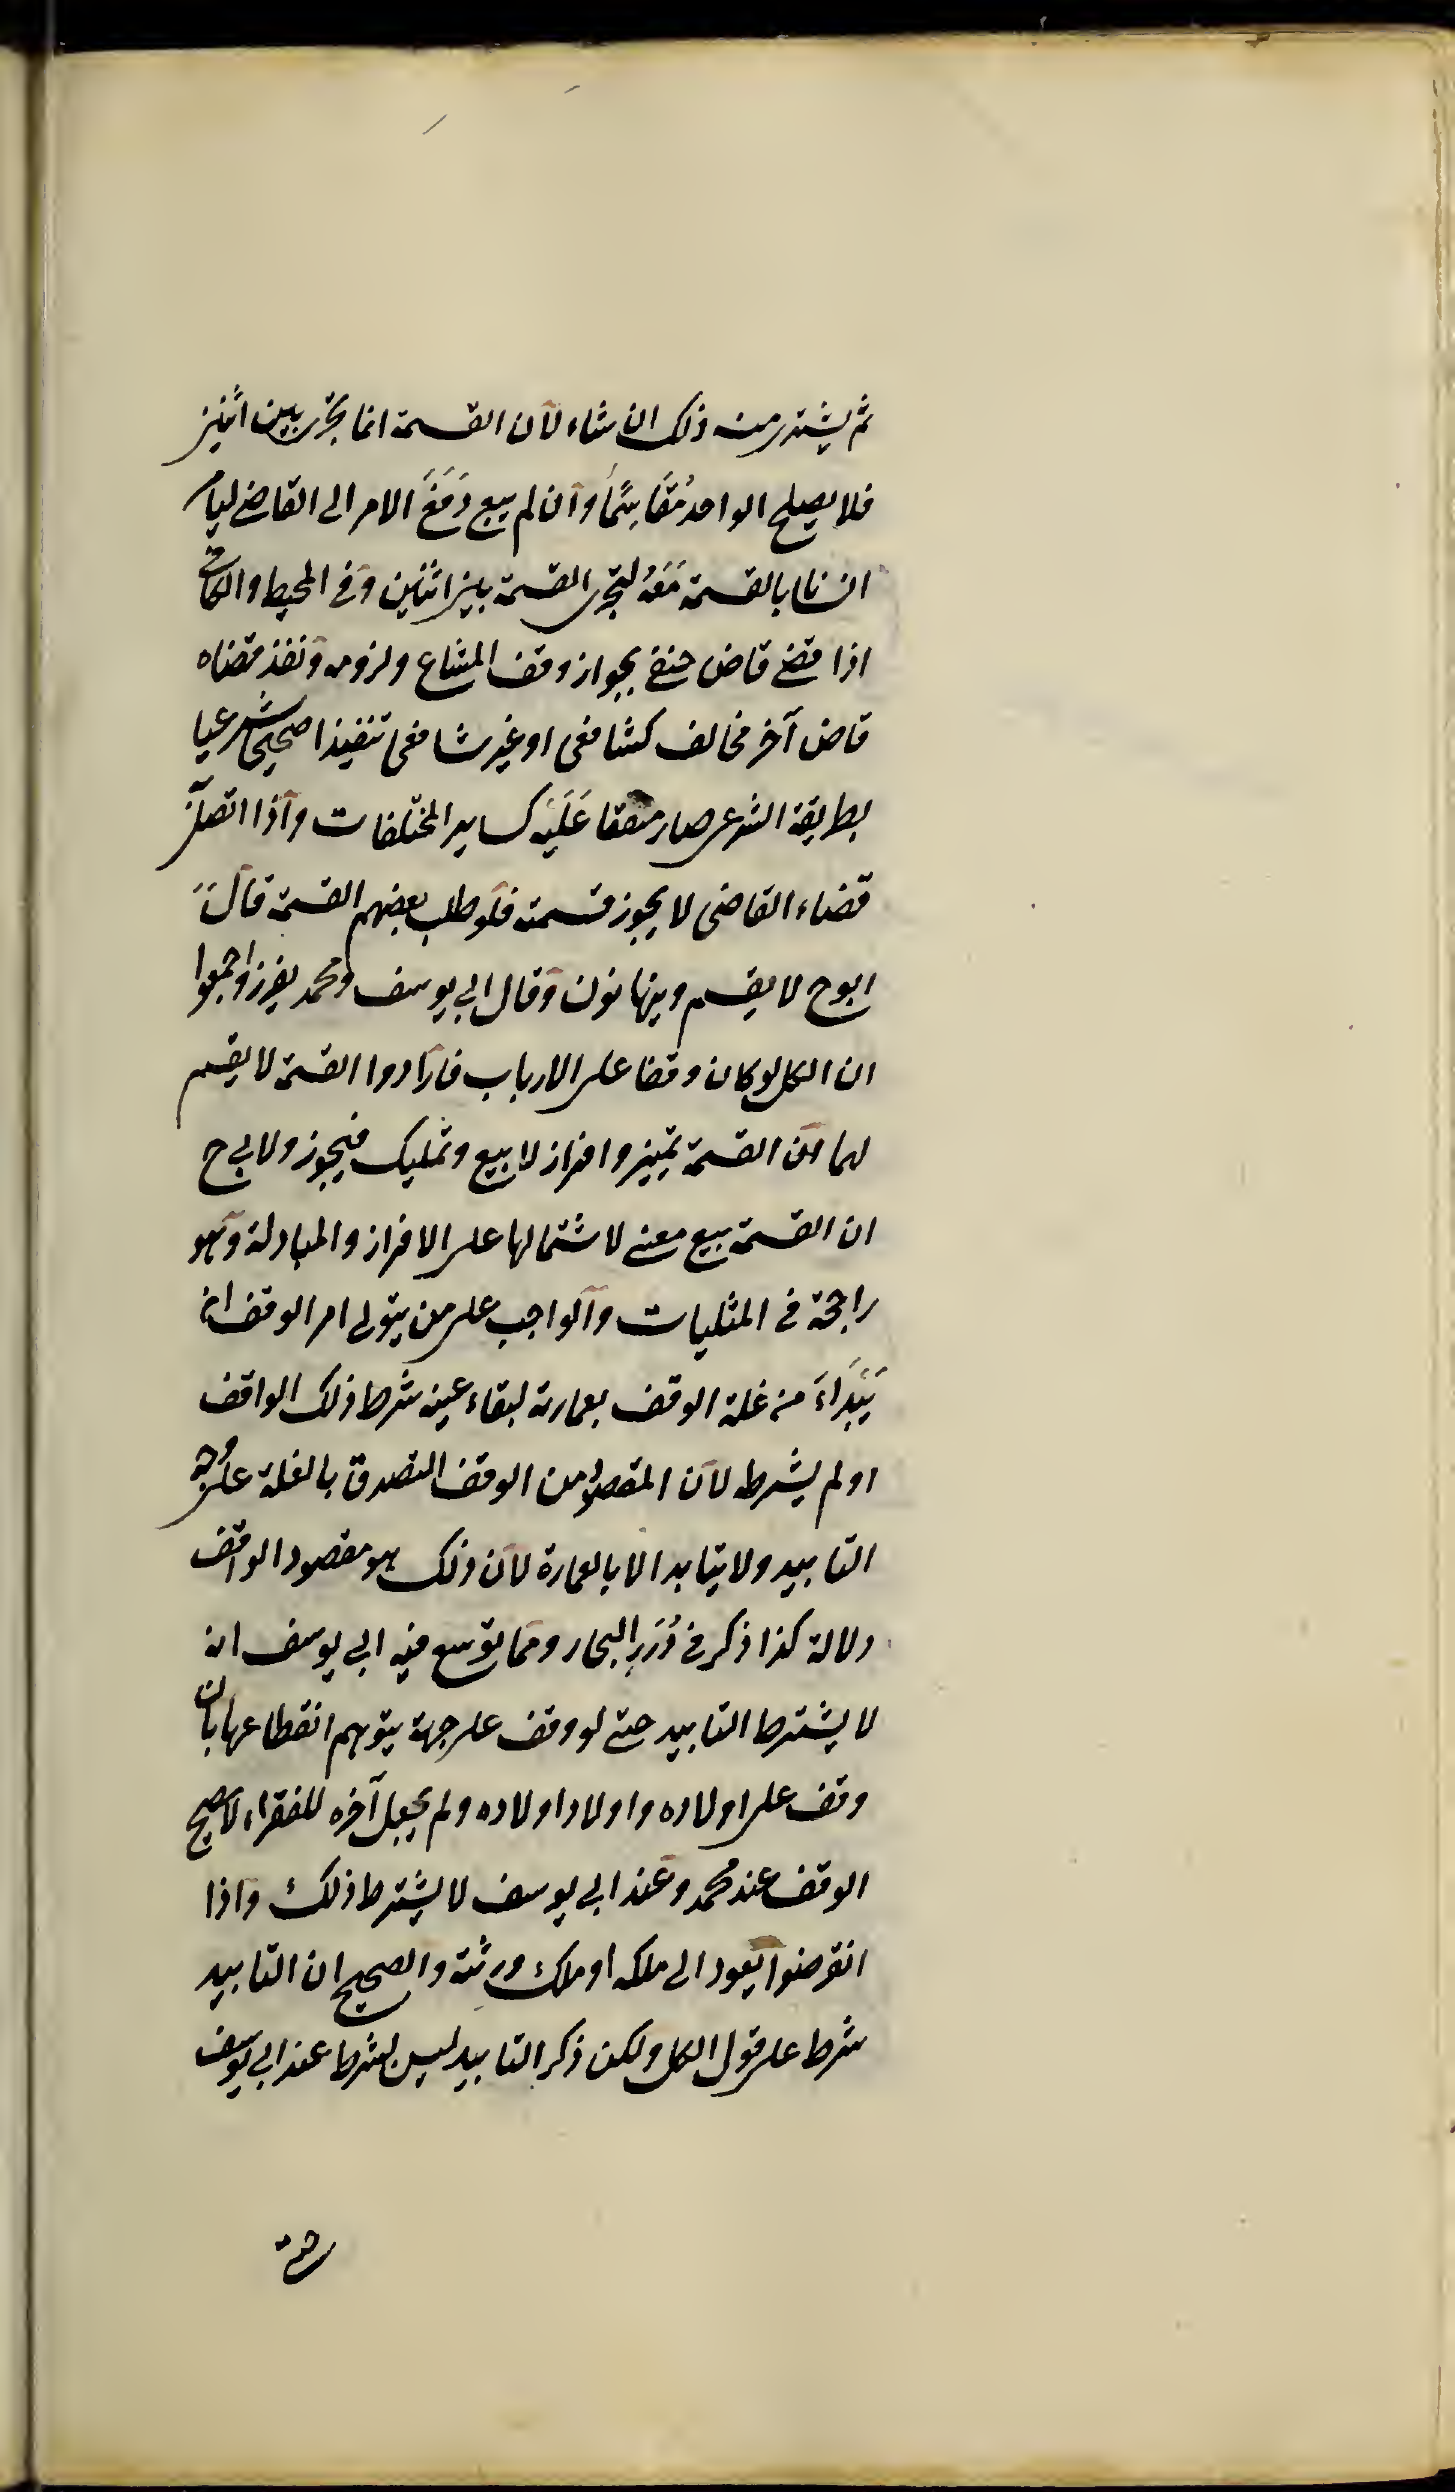 ثم يشترى منه ذلك ان شاء لان القسمة انما تجرى بين اثنين
فلا يصلح الواحد مُقَاسِمًا وان لم يبع دَفَعَ الامر الى القاضى ليامر
انسانا بالقسمة مَعَهُ لتجرى القسمة بين اثنين وفى المحيط والكافى
اذا قضى قاض حنفى بجواز وقف المشاع ولزومه ونفذ قضاه
قاض آخر مخالف كشافعى او غير شافعى تنفيذا صحيحا شرعيا
بطريقة الشرعى صار متفقا عَلَيْه كساير المختلفات واذا اتصل
قضاء القاضى لا يجوز قسمته فلو طلب بعضهم القسمة قَالَ
ابوح لا يقسم ويتهايؤن وقال ابى يوسف ومحمد يفرز واجمعوا
ان الكل لو كان وقفا على الارباب فارادوا القسمة لا يقسم
لهما لان القسمة تميز وافراز لا بيع وتمليك فيجوز ولابى ح
ان القسمة بيع معنى لاشتمالها على الافراز والمبادلة وهو
راجحة فى المثليات والواجب على من يتولى امر الوقف ان
يَبْتَدَاءَ من غلة الوقف بعمارته لبقاء عينه شرط ذلك الواقف
او لم يشرط لان المقصود من الوقف التصدق بالغلة على وجه
التابيد ولا يتابد الا بالعمارة لان ذلك هو مقصود الواقف
دلالة كذا ذكر فى دُرَرِ البحار ومما توسع فيه ابى يوسف انه
لا يشترط التابيد حتى لو وقف على جهة يتوهم انقطاعها بان
وقف على اولاده واولاد اولاده ولم يجعل آخره للفقراء لا يصح
الوقف عند محمد وعند ابى يوسف لا يشترط ذلك واذا
انقرضوا يعود الى ملكه او ملك ورثته والصحيح ان التابيد
شرط على قول الكل ولكن ذكر التابيد ليس بشرط عند ابى يوسف